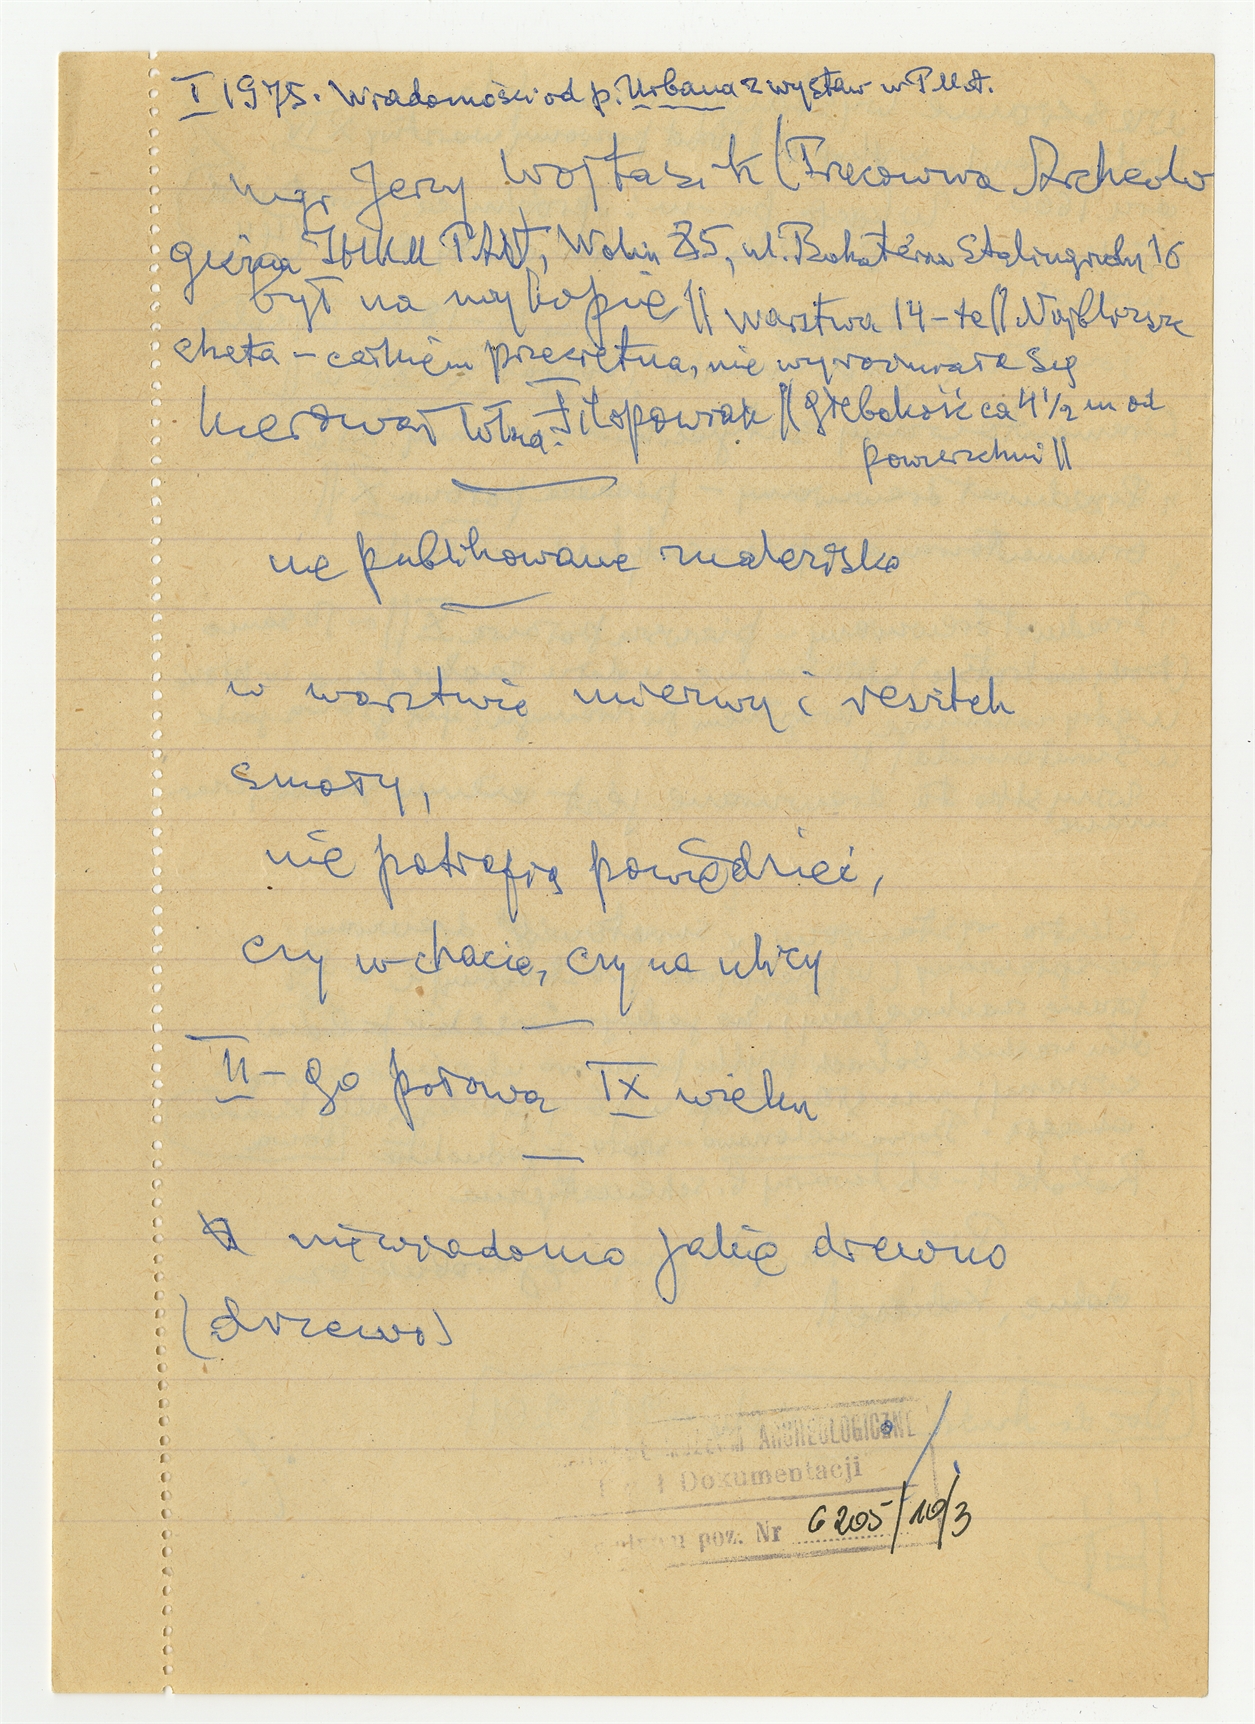 I 1975. Wiadomości od p. Urbana z wystaw w PMA.
mgr Jerzy Wojtasik (Pracownia Archeolo
giczna IHKM PAN, Wolin 85, ul. Bohaterów Stalingradu 16
był na wykopie || warstwa 14-ta || Najbliższa
chata – całkiem przeciętna, nie wyróżniała się
kierował Wład. Filipowiak || głębokość ca 4 1/2 m od
powierzchni ||
nie publikowane znalezisko
w warstwie mierzwy i resztek
smoły,
nie potrafią powiedzieć,
czy w chacie, czy na ulicy
II-ga połowa IX wieku
niewiadomo jakie drewno
(drzewo)
MUZEUM ARCHEOLOGICZNE
Dokumentacji
poz. Nr 6205/10/3